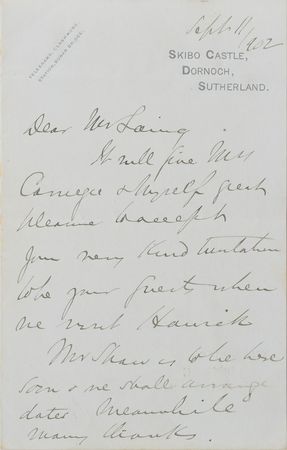 Sept. 11/1902
TELEGRAMS, CLASHMORE.
STATION, BONAR BRIDGE.
SKIBO CASTLE,
DORNOCH,
SUTHERLAND.
Dear Mr Laing
It will give Mrs
Carnegie & Myself great
pleasure to accept
your very kind invitation
to be your Guests when
we visit Hawick
Mr Shaw is to be here
soon & we shall arrange
dates Meanwhile
many thanks.